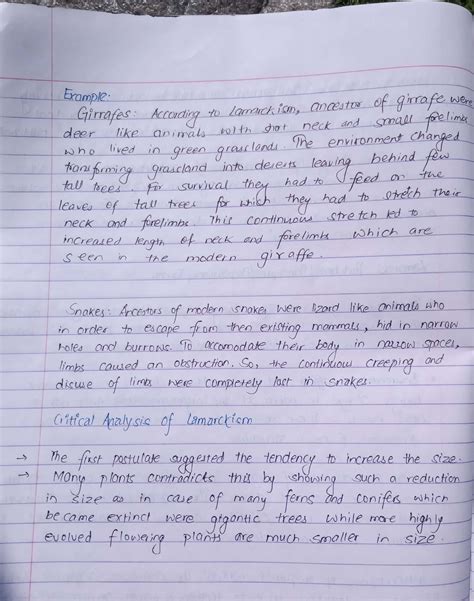 Example:
Girrafes: According to Lamarckism, ancestor of girrafe were
deer like animals with shot neck and small forelimbs
who lived in green grasslands. The environment changed
transforming grassland into deserts leaving behind few
tall trees. For survival they had to feed on the
leaves of tall trees for which they had to stretch their
neck and forelimbs. This continuous stretch led to
increased length of neck and forelimbs which are
seen in the modern giraffe.
Snakes: Ancestors of modern snakes were lizard like animals who
in order to escape from then existing mammals, hid in narrow
holes and burrows. To accomodate their body in narrow spaces,
limbs caused an obstruction. So, the continuous creeping and
disuse of limbs were completely lost in snakes.
Critical Analysis of Lamarckism
→ The first postulate suggested the tendency to increase the size.
→ Many plants contradicts this by showing such a reduction
in size as in case of many ferns and conifers which
became extinct were gigantic trees while more highly
evolved flowering plants are much smaller in size.